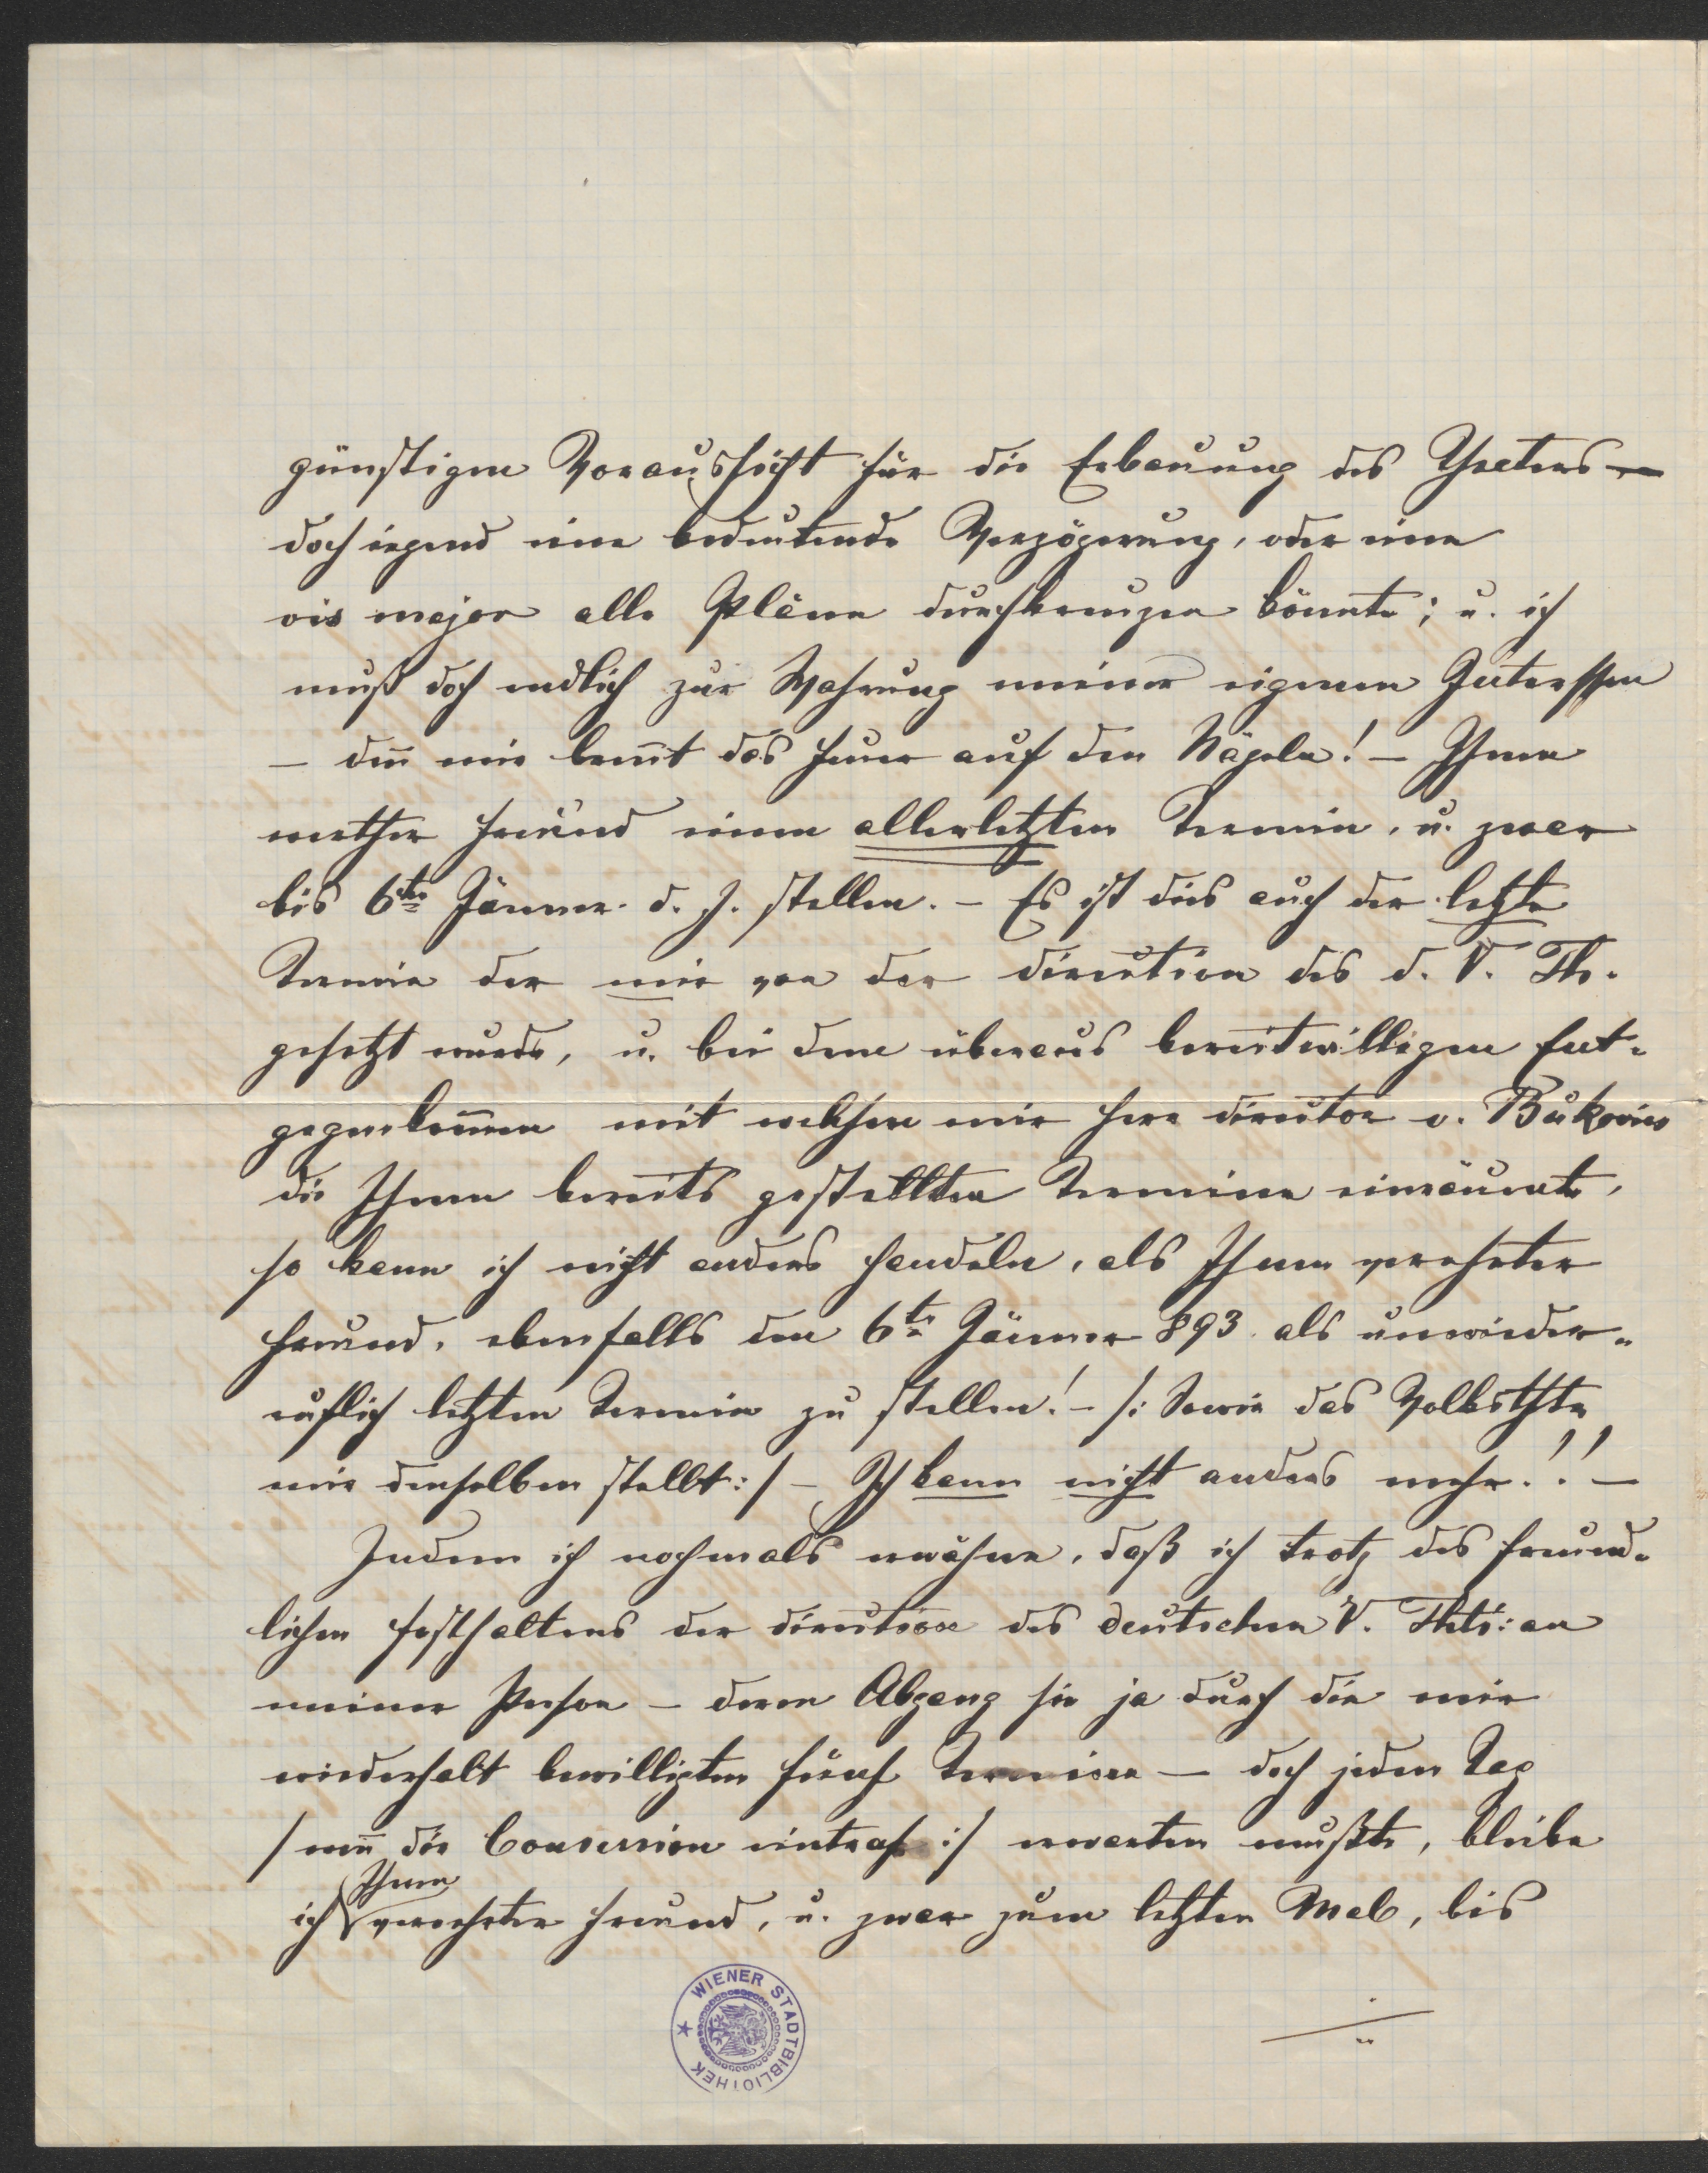 günstigen Voraussicht für die Erbauung des Theaters —
doch irgend eine bedeutende Verzögerung, oder eine
vis major alle Pläne durchkreuzen könnte; u. ich
muß doch endlich zur Wahrung meiner eigenen Interessen
— den̄ mir bren̄t das Feuer auf den Nägeln! — Ihnen
werther Freund einen allerletzten Termin, u. zwar
bis 6te Jänner d. J. stellen. — Es ist dies auch der letzte
Termin der mir von der Direction des d. V. Th.
gesetzt wurde, u. bei dem überaus bereitwilligen Ent-
gegenkom̄en mit welchem mir Herr Director v. Bukovics
die Ihnen bereits gestellten Termine einräumte,
so kann ich nicht anders handeln, als Ihnen verehrter
Freund, ebenfalls den 6te Jänner 893. als unwieder-
ruflich letzten Termin zu stellen! — /: Sowie das Volksthtr
mir denselben stellt :/ — Ich kann nicht anders mehr!! —
Indem ich nochmals erwähne, daß ich trotz des freund-
lichen Festhaltens der Direction des deutschen V. Thts: an
meiner Person — deren Abgang sie ja durch die mir
wiederholt bewilligten fünf Termine — doch jeden Tag
/ wen̄ die Concession eintraf :/ erwarten mußte, bleibe
ich Ihnen verehrter Freund, u. zwar zum letzten Mal, bis
./..
WIENER STADTBIBLIOTHEK